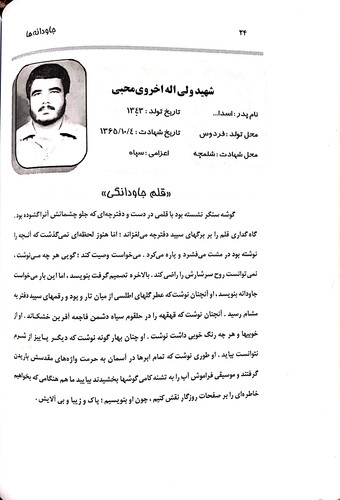 ۲۴
جاودانه‌ها
شهید ولی اله اخروی محبی
نام پدر : اسدا... تاریخ تولد : ۱۳۴۳
محل تولد : فردوس تاریخ شهادت : ۱۳۶۵/۱۰/۴
محل شهادت : شلمچه اعزامی : سپاه
«قلم جاودانگی»
گوشه سنگر نشسته بود با قلمی در دست و دفترچه‌ای که جلو چشمانش آنرا گشوده بود.
گاه گداری قلم را بر برگهای سپید دفترچه می‌لغزاند ؛ اما هنوز لحظه‌ای نمی‌گذشت که آنچه را
نوشته بود در مشت می‌فشرد و پاره می‌کرد . می‌خواست وصیت کند ؛ گویی هر چه می‌نوشت ،
نمی‌توانست روح سرشارش را راضی کند . بالاخره تصمیم گرفت بنویسد ، اما این بار می‌خواست
جاودانه بنویسد ، او آنچنان نوشت که عطر گلهای اطلسی از میان تار و پود و رقمهای سپید دفتر به
مشام رسید . آنچنان نوشت که قهقهه را در حلقوم سپاه دشمن فاجعه آفرین خشکاند . او از
خوبیها و هر چه رنگ خوبی داشت نوشت . او چنان بهار گونه نوشت که دیگر پاییز از شرم
نتوانست بیاید . او طوری نوشت که تمام ابرها در آسمان به حرمت واژه‌های مقدسش باریدن
گرفتند و موسیقی فراموش آب را به تشنه کامی گوشها بخشیدند بیایید ما هم هنگامی که بخواهیم
خاطره‌ای را بر صفحات روزگار نقش کنیم ، چون او بنویسیم : پاک و زیبا و بی آلایش .